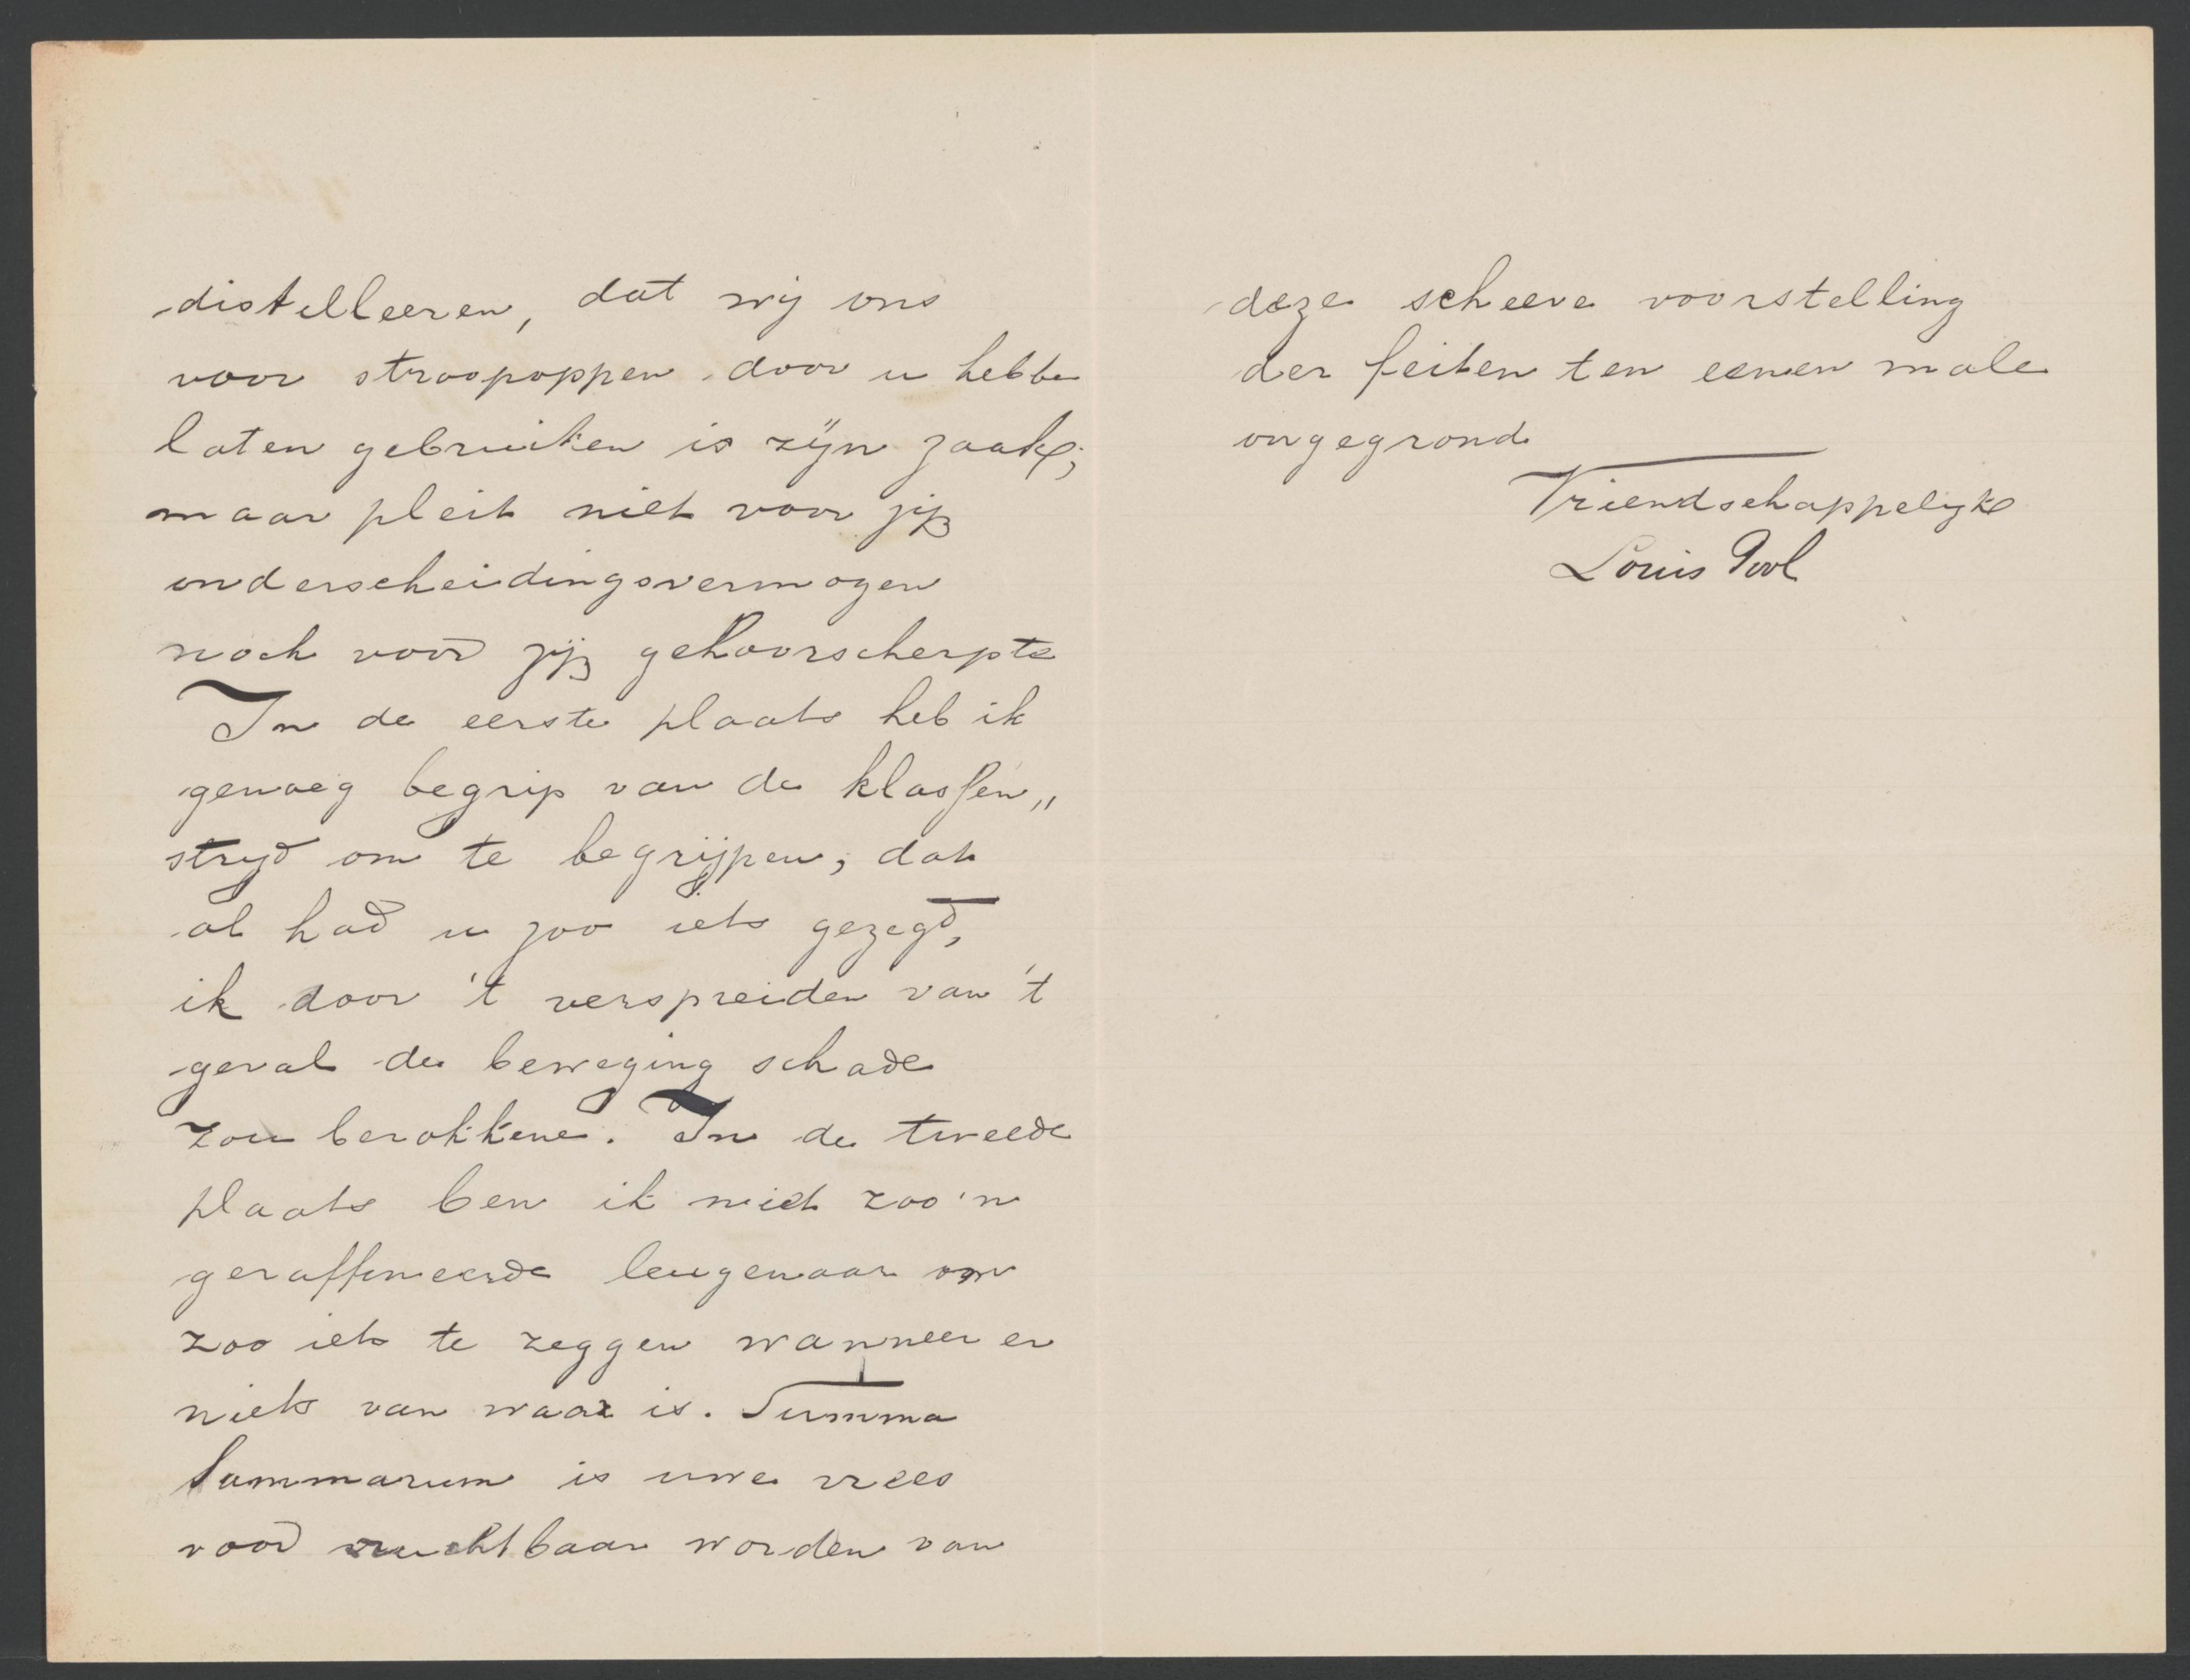 distelleeren, dat wij ons
voor stroopoppen door u hebbe
laten gebruiken is zijn zaak;
maar pleit niet voor zijn
onderscheidingsvermogen
noch voor zijn gehoorscherpte
In de eerste plaats heb ik
genoeg begrip van de klassen„
strijd om te begrijpen, dat
al had u zoo iets gezegd,
ik door 't verspreiden van 't
geval de beweging schade
zou berokkene. In de tweede
plaats ben ik niet zoo'n
geraffineerde leugenaar om
zoo iets te zeggen wanneer er
niets van waar is. Summa
Summarum is uwe vrees
voor ruchtbaar worden van
deze scheeve voorstelling
der feiten ten eenen male
ongegrond
Vriendschappelijk
Louis Pool